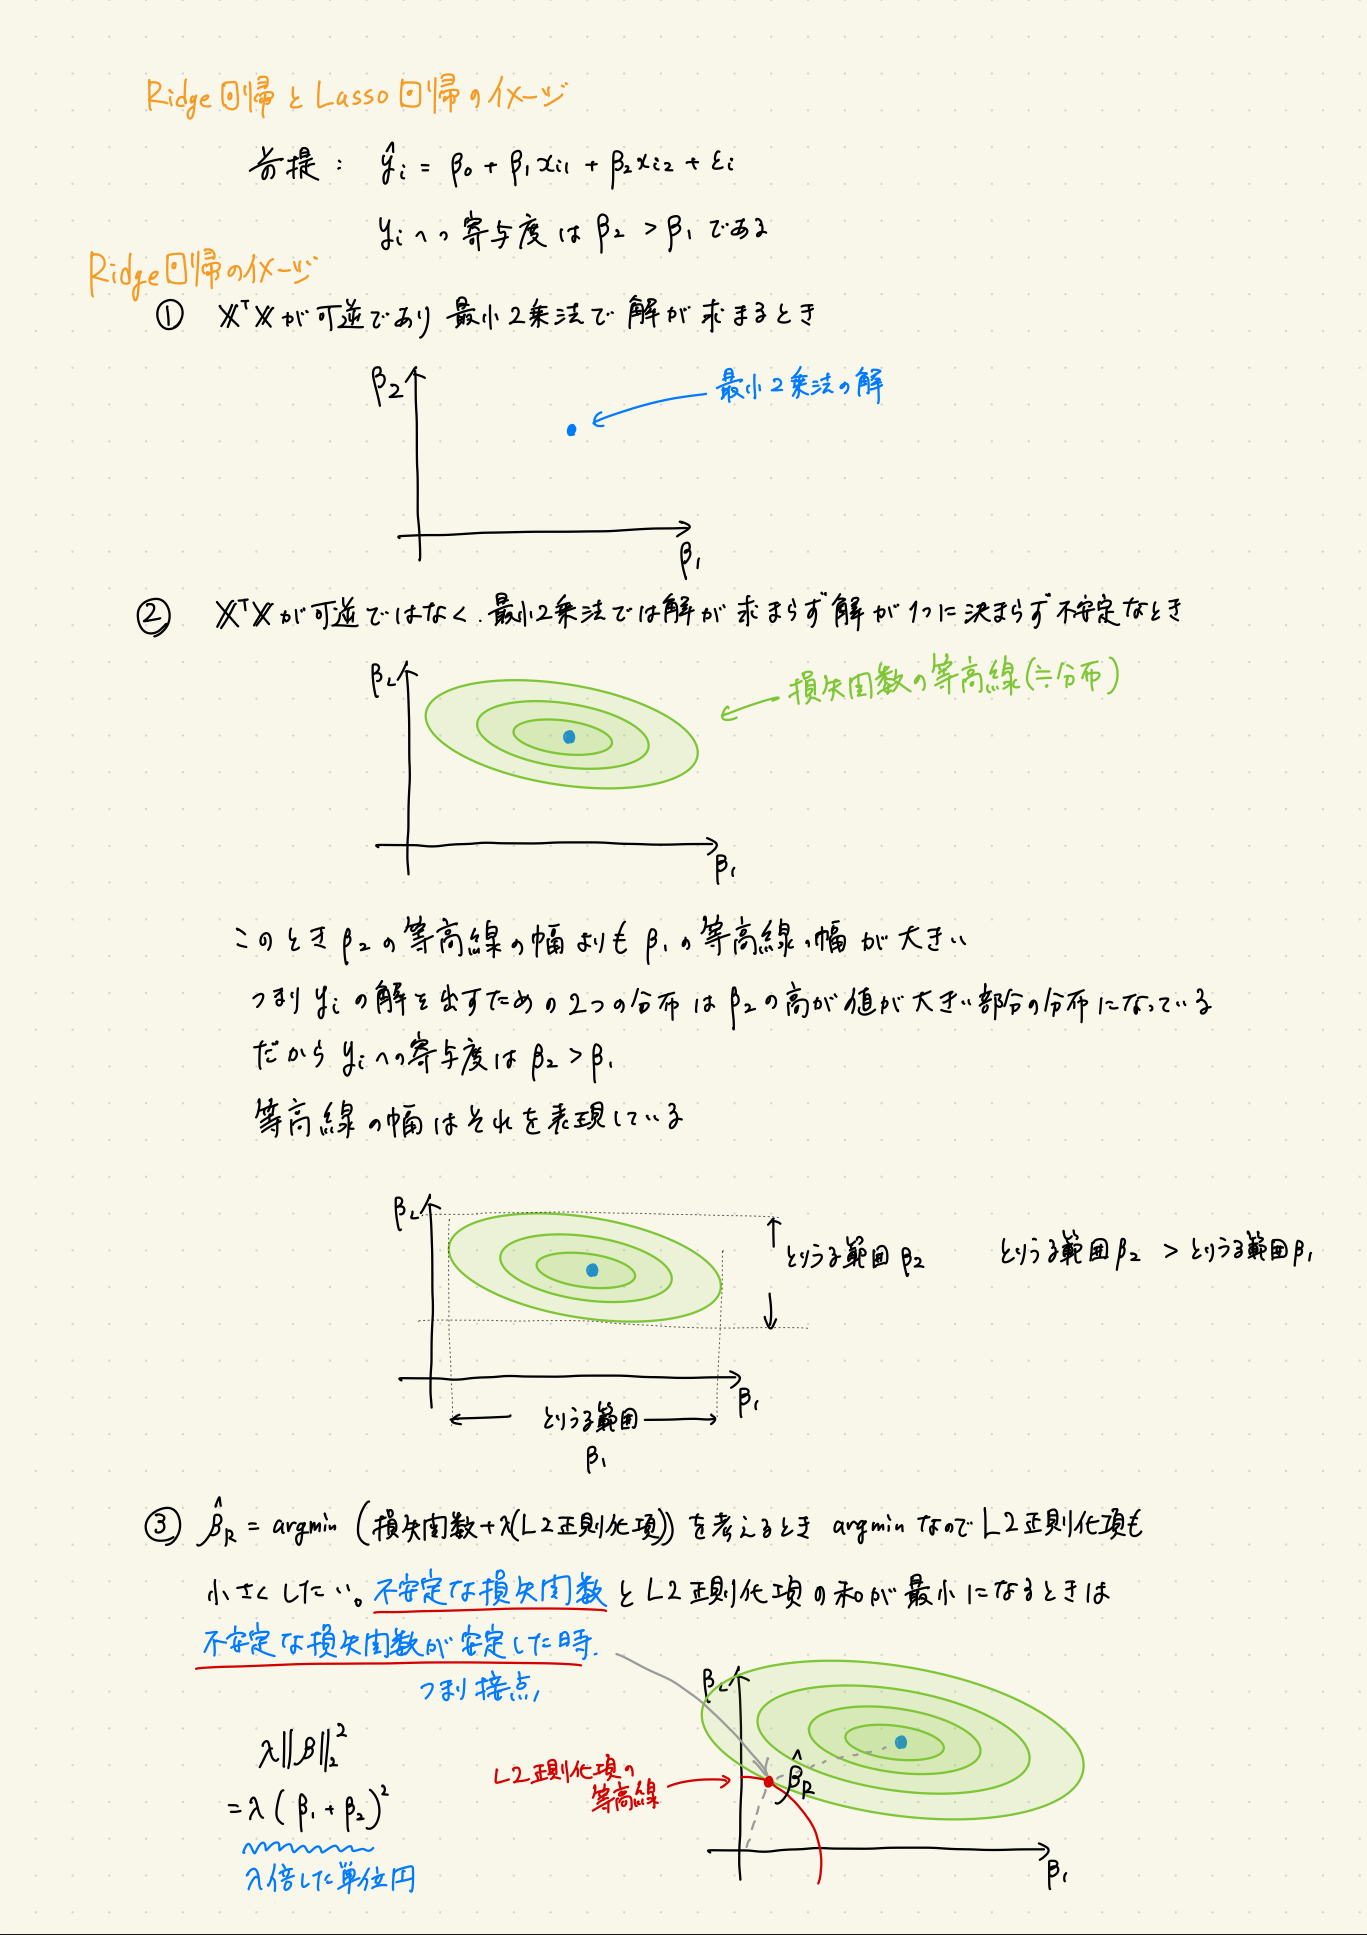 Ridge回帰とLasso回帰のイメージ
前提： ŷi = β0 + β1xi1 + β2xi2 + εi
yiへの寄与度は β2 > β1 である
Ridge回帰のイメージ
① XᵀXが可逆であり 最小2乗法で 解が 求まるとき
β2
最小2乗法の解
β1
② XᵀXが可逆ではなく、最小2乗法では解が 求まらず 解が 1つに 決まらず 不安定なとき
β2
損失関数の等高線(≒分布)
β1
このとき β2の等高線の幅よりも β1の等高線の幅が大きい
つまり yiの解を出すための2つの分布は β2の高が値が大きい部分の分布になっている
だから yiへの寄与度は β2 > β1
等高線の幅はそれを表現している
β2
とりうる範囲 β2
とりうる範囲 β2 > とりうる範囲 β1
β1
とりうる範囲
β1
③ β̂R = argmin (損失関数+λ(L2正則化項)) を考えるとき argminなのでL2正則化項も
小さくしたい。不安定な損失関数とL2正則化項の和が最小になるときは
不安定な損失関数が安定した時、
つまり接点、
β2
λ‖β‖₂²
L2正則化項の
等高線
β̂R
=λ(β1+β2)²
β1
λ倍した単位円